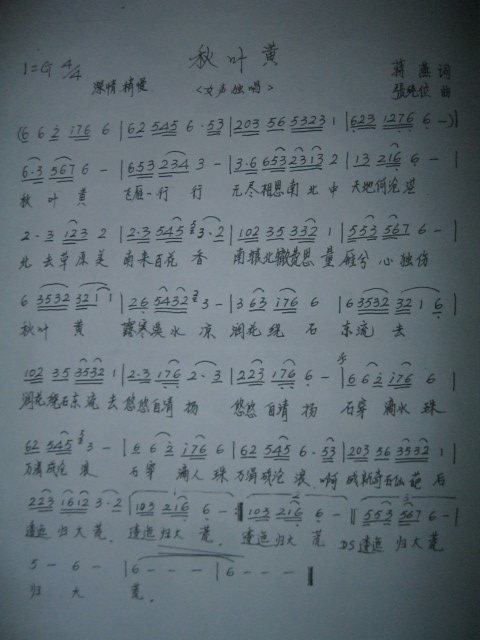 秋叶黄
1=G 4/4
深情 稍慢
<女声独唱>
蒋燕 词
张纯位 曲
(6 6 2 i76 6 | 62 545 6·53 | 203 56 5323 1 | 623 1276 6 -)|
6·3 567 6 - | 653 234 3 - | 3·6 653 2313 2 | 13 216 6 - |
秋 叶 黄 飞雁一行 行 无尽相思南 北 中 天地何沧茫
2·3 123 2 | 2·3 545 3·2 | 102 35 332 1 | 553 567 6 - |
北 去草原美 南来百花 香 南辕北辙费思 量 雁兮 心独伤
6 3532 32 1 1 | 26 5432 3 - | 3 63 i76 6 | 6 3532 32 1 6 |
秋叶 黄 露寒溪水 凉 润花绕 石 东流 去
102 35 3532 1 | 2·3 176 2·3 | 223 176 6 - | 6 6 2 i76 6 |
润花绕石东流 去 悠悠自清 扬 悠悠 自清 扬 石穿 滴水 珠
62 545 3 - | 6 6 2 i76 6 | 62 545 6·53 | 203 56 3532 1 |
万滴成沧 浪 石穿 滴人 珠 万滴成沧 浪 啊 成新奇石仙 葩 后
223 1612 3·2 | 103 216 6 - :| 103 216 6 - || 553 567 6 - |
逢迎 归大荒 逢迎归大 荒 逢迎 归大 荒 DS 逢迎 归大 荒
5 - 6 - | 6 - - - | 6 - - - |
归 大 荒